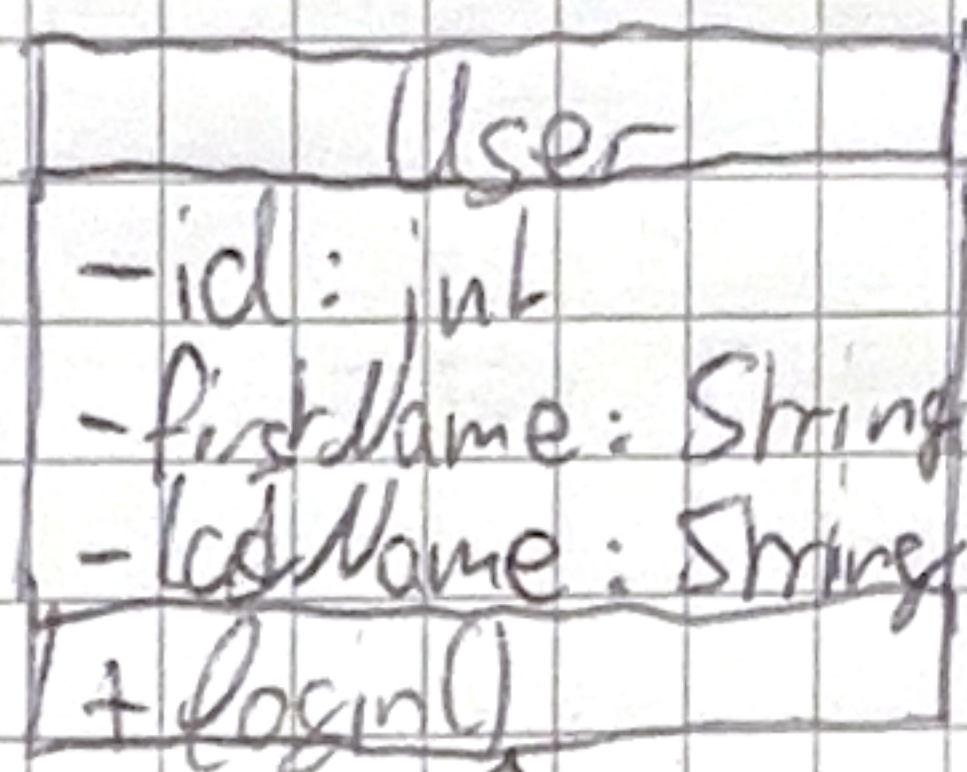 User
-id: int
-firstName: String
-lastName: String
+ login()